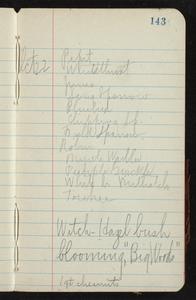 143
Oct 22 Pipit
Whitethroat
Junco
Song Sparrow
Bluebird
Chipping Sp.
Field Sparrow
Robin
Myrtle Warbler
Purple Finch
White b. Nuthatch
Towhee
Witch-Hazel bush
blooming, "Big Woods"
1st chestnuts